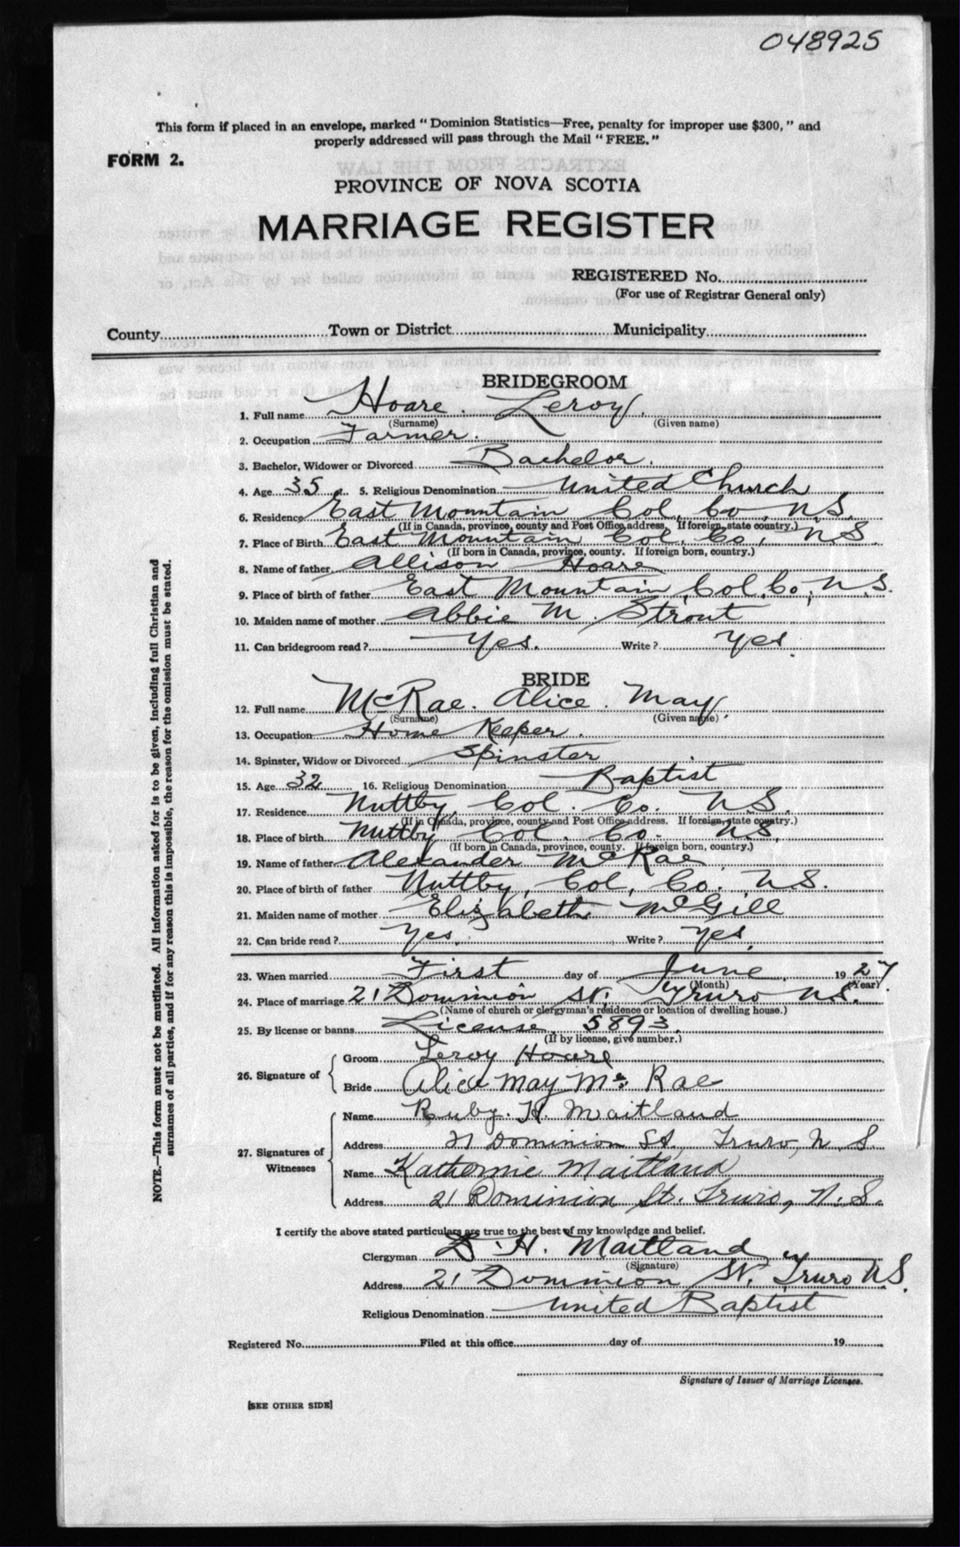 048925
This form if placed in an envelope, marked "Dominion Statistics—Free, penalty for improper use $300," and
properly addressed will pass through the Mail "FREE."
FORM 2.
PROVINCE OF NOVA SCOTIA
MARRIAGE REGISTER
REGISTERED No.
(For use of Registrar General only)
County Town or District Municipality
BRIDEGROOM
1. Full name Hoare. Leroy.
(Surname) (Given name)
2. Occupation Farmer.
3. Bachelor, Widower or Divorced Bachelor.
4. Age 35 5. Religious Denomination United Church
6. Residence East Mountain Col. Co, N.S.
(If in Canada, province, county and Post Office address. If foreign, state country.)
7. Place of Birth East Mountain Col. Co, N.S.
(If born in Canada, province, county. If foreign born, country.)
8. Name of father Allison Hoare
9. Place of birth of father East Mountain, Col. Co, N.S.
10. Maiden name of mother Abbie M. Strout
11. Can bridegroom read? Yes. Write? Yes.
BRIDE
12. Full name McRae. Alice. May.
(Surname) (Given name)
13. Occupation Home Keeper.
14. Spinster, Widow or Divorced Spinster
15. Age 32 16. Religious Denomination Baptist
17. Residence Nuttby, Col. Co. N.S.
(If in Canada, province, county and Post Office address. If foreign, state country.)
18. Place of birth Nuttby Col. Co. N.S.
(If born in Canada, province, county. If foreign born, country.)
19. Name of father Alexander McRae
20. Place of birth of father Nuttby, Col, Co. N.S.
21. Maiden name of mother Elizabeth McGill
22. Can bride read? Yes. Write? Yes.
23. When married First day of June 1927
(Month) (Year)
24. Place of marriage 21 Dominion St. Truro N.S.
(Name of church or clergyman's residence or location of dwelling house.)
25. By license or banns License 5893.
(If by license, give number.)
26. Signature of Groom Leroy Hoare
Bride Alice May Mc Rae
27. Signatures of Witnesses Name Ruby. H. Maitland
Address 21 Dominion St, Truro, N S.
Name Katherine Maitland
Address 21 Dominion St. Truro, N.S.
I certify the above stated particulars are true to the best of my knowledge and belief.
Clergyman D. H. Maitland
(Signature)
Address 21 Dominion St. Truro N.S.
Religious Denomination United Baptist
Registered No. Filed at this office day of 19
Signature of Issuer of Marriage Licenses.
[SEE OTHER SIDE]
NOTE.—This form must not be mutilated. All information asked for is to be given, including full Christian and
surnames of all parties, and if for any reason this is impossible, the reason for the omission must be stated.